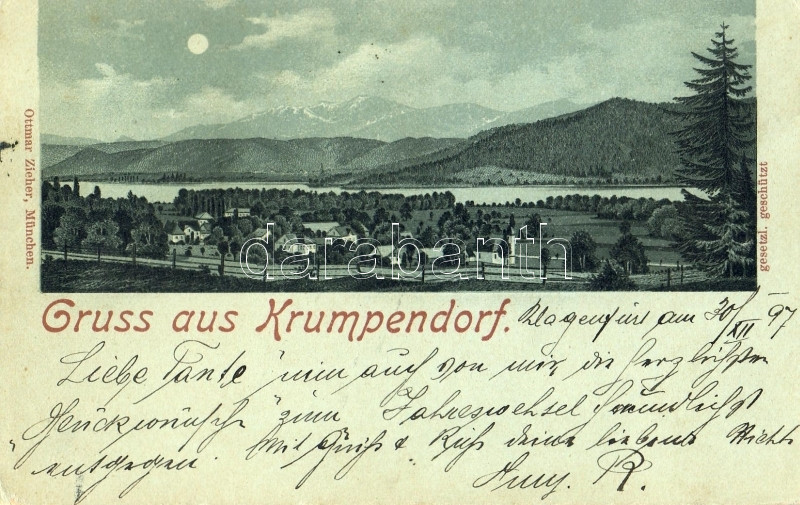 Ottmar Zieher, München.
gesetzl. geschützt
darabanth
Gruss aus Krumpendorf.
Klagenfurt am 30/XII 97
Liebe Tante nim auch von mir die herzlichsten
Glückwünsche zum Jahreswechsel freundlichst
entgegen. Mit Gruß & Kuß deine liebende Nichte
R.